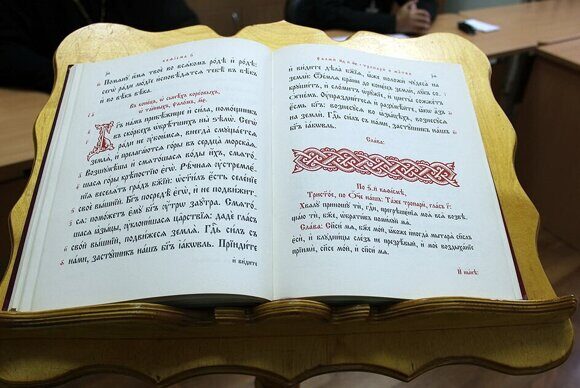 каѳісма ѕ҃
Помѧнꙋ̀ и҆́мѧ твоѐ во всѧ́комъ ро́дѣ и҆ ро́дѣ:
сегѡ̀ ра́ди лю́дїе и҆сповѣ́дѧтсѧ тебѣ̀ въ вѣ́къ
и҆ во вѣ́къ вѣ́ка.
Въ коне́цъ, ѡ҆ сынѣ́хъ коре́овыхъ,
ѡ҆ та́йныхъ, ѱало́мъ, м҃е.
Бг҃ъ на́мъ прибѣ́жище и҆ си́ла, помо́щникъ
въ ско́рбехъ ѡ҆брѣ́тшихъ ны̀ ѕѣлѡ̀. Сегѡ̀
ра́ди не ᲂу҆бои́мсѧ, внегда̀ смꙋща́етсѧ
землѧ̀, и҆ прелага́ютсѧ го́ры въ сердца̀ морска̑ѧ.
Возшꙋмѣ́ша и҆ смѧто́шасѧ во́ды и҆́хъ, смѧто́-
шасѧ го́ры крѣ́постїю є҆гѡ̀. Рѣчна̑ѧ ᲂу҆стремлє́-
нїѧ веселѧ́тъ гра́дъ бж҃їй: ѡ҆ст҃и́лъ є҆́сть селе́нїе
своѐ вы́шнїй. Бг҃ъ посредѣ̀ є҆гѡ̀, и҆ не подви́жит-
сѧ: помо́жетъ є҆мꙋ̀ бг҃ъ ᲂу҆́трѡ заꙋ́тра. Смѧто́-
шасѧ ꙗ҆зы́цы, ᲂу҆клони́шасѧ ца́рствїѧ: дадѐ гла́съ
сво́й вы́шнїй, подви́жесѧ землѧ̀. Гдⷭ҇ь си́лъ съ
на́ми, застꙋ́пникъ на́шъ бг҃ъ і҆а́кѡвль. Прїиди́те
и҆ ви́дите
и҆ ви́дите дѣла̀ бж҃їѧ, ꙗ҆̀же положѝ чꙋдеса̀ на
землѝ: Ѿе́млѧ бра̑ни до коне́цъ землѝ, лꙋ́къ со-
крꙋши́тъ, и҆ сло́митъ ѻ҆рꙋ́жїе, и҆ щиты̀ сожже́тъ
ѻ҆гне́мъ. Оу҆праздни́тесѧ и҆ разꙋмѣ́йте, ꙗ҆́кѡ а҆́зъ
є҆́смь бг҃ъ: вознесꙋ́сѧ во ꙗ҆зы́цѣхъ, вознесꙋ́сѧ
на землѝ. Гдⷭ҇ь си́лъ съ на́ми, застꙋ́пникъ на́шъ
бг҃ъ і҆а́кѡвль.
Сла́ва:
По ѕ҃-й каѳі́смѣ,
Трист҃о́е, по Ѻ҆́ч҃е на́шъ: Та́же тропарѝ, гла́съ
Хвалꙋ̀ приношꙋ́ ти, гдⷭ҇и, прегрѣшє́нїѧ моѧ̑ всѧ̑ возвѣ-
ща́ю тѝ, бж҃е, ѡ҆братѝвъ поми́лꙋй мѧ̀.
Сла́ва: Сп҃си́ мѧ, бж҃е мо́й, ꙗ҆́коже и҆ногда̀ мытарѧ̀ сп҃слъ
є҆сѝ, и҆ блꙋдни́цы сле́зъ не презрѣ́вый, и҆ моѐ воздыха́нїе
прїимѝ, сп҃се мо́й, и҆ сп҃си́ мѧ.
И҆ ны́нѣ: